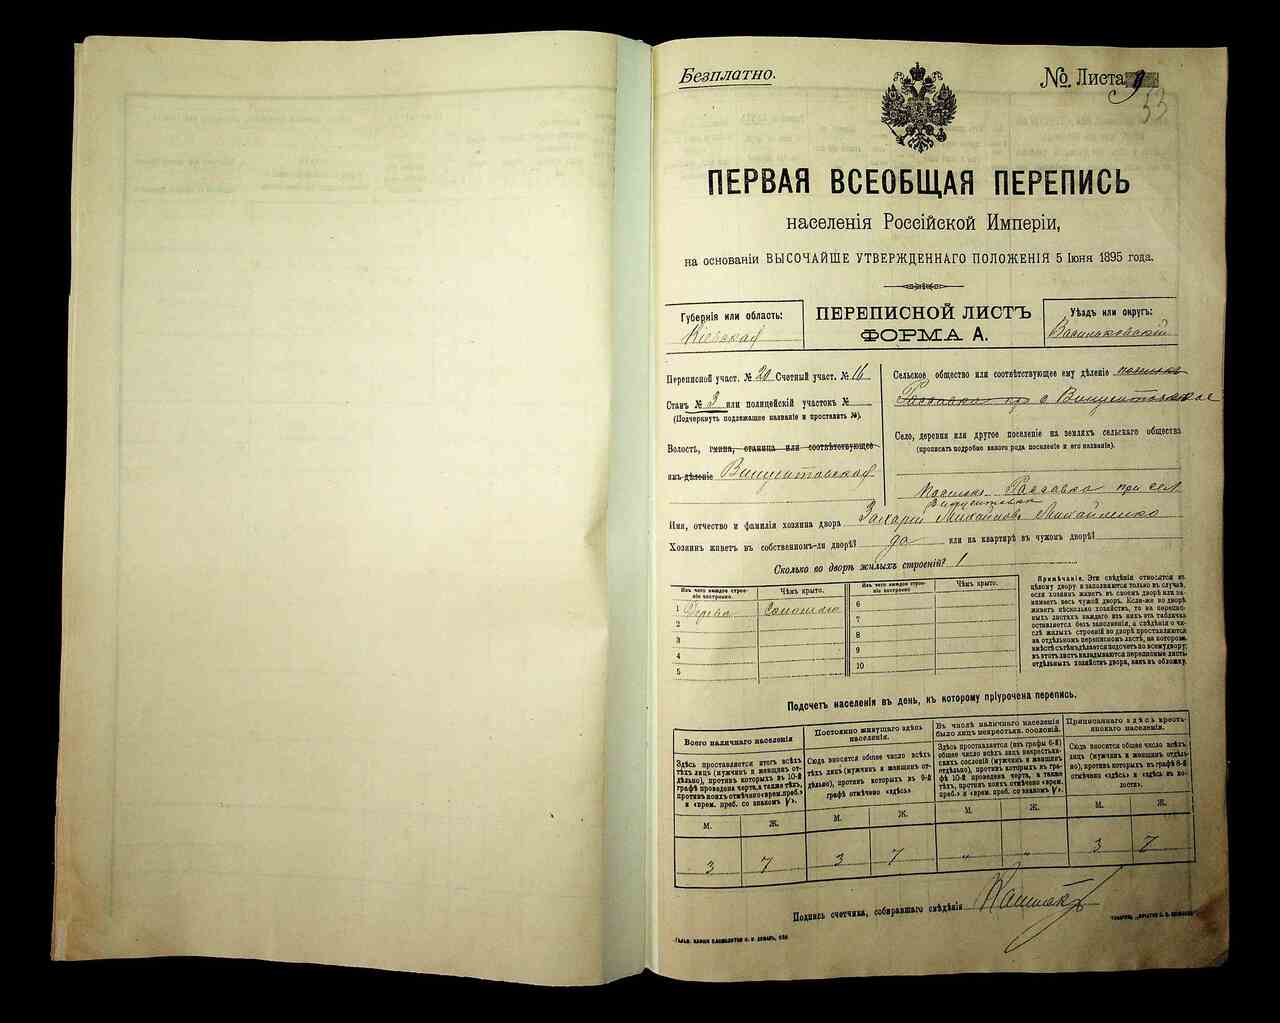 Безплатно.
№ Листа 9
53
ПЕРВАЯ ВСЕОБЩАЯ ПЕРЕПИСЬ
населенія Россійской Имперіи,
на основаніи ВЫСОЧАЙШЕ УТВЕРЖДЕННАГО ПОЛОЖЕНІЯ 5 Іюня 1895 года.
Губернія или область:
Кіевская
ПЕРЕПИСНОЙ ЛИСТЪ
ФОРМА А.
Уѣздъ или округъ:
Васильковскій
Переписной участ. № 20 Счетный участ. № 16
Станъ № 3 или полицейскій участокъ №
(Подчеркнуть подлежащее названіе и проставить №).
Волость, гмина, станица или соотвѣтствующее
имъ дѣленіе Винцентовская
Сельское общество или соотвѣтствующее ему дѣленіе
с Винцентовское
Село, деревня или другое поселеніе на земляхъ сельскаго общества
(прописать подробно какого рода поселеніе и его названіе).
при сел.
Имя, отчество и фамилія хозяина двора Захарій Михайловъ Михайленко
Хозяинъ живетъ въ собственномъ-ли дворѣ? да или на квартирѣ въ чужомъ дворѣ?
Сколько во дворѣ жилыхъ строеній? 1
Изъ чего каждое строеніе построено.
Чѣмъ крыто.
Изъ чего каждое строеніе построено.
Чѣмъ крыто.
1 Дерева Соломою
2
3
4
5
6
7
8
9
10
Примѣчаніе. Эти свѣдѣнія относятся къ
цѣлому двору и заполняются только въ случаѣ,
если хозяинъ живетъ въ своемъ дворѣ или занимаетъ
весь чужой дворъ. Если-же во дворѣ
живетъ нѣсколько хозяйствъ, то на переписныхъ
листахъ каждаго изъ нихъ эта табличка
оставляется безъ заполненія, а свѣдѣнія о числѣ
жилыхъ строеній во дворѣ проставляются
на отдѣльномъ переписномъ листѣ, на которомъ
вмѣстѣ съ тѣмъ дѣлается подсчетъ по всему двору;
въ этотъ листъ вкладываются переписные листы
отдѣльныхъ хозяйствъ двора, какъ въ обложку.
Подсчетъ населенія въ день, къ которому пріурочена перепись.
Всего наличнаго населенія
Здѣсь проставляется итогъ всѣхъ
тѣхъ лицъ (мужчинъ и женщинъ отдѣльно),
противъ которыхъ въ 10-й
графѣ проведена черта, а также тѣхъ,
противъ коихъ отмѣчено «врем. преб.»
и «врем. преб. со знакомъ V».
Постоянно живущаго здѣсь
населенія.
Сюда вносится общее число всѣхъ
тѣхъ лицъ (мужчинъ и женщинъ отдѣльно),
противъ которыхъ въ 9-й
графѣ отмѣчено «здѣсь»
Въ числѣ наличнаго населенія
было лицъ некрестьянск. сословій.
Здѣсь проставляется (изъ графы 6-й)
общее число всѣхъ лицъ некрестьянскихъ
сословій (мужчинъ и женщинъ
отдѣльно), противъ которыхъ въ графѣ
10-й проведена черта, а также
тѣхъ, противъ коихъ отмѣчено «врем.
преб.» и «врем. преб. со знакомъ V».
Приписаннаго здѣсь крестьянскаго
населенія.
Сюда вносится общее число всѣхъ
лицъ (мужчинъ и женщинъ отдѣльно),
противъ которыхъ въ графѣ 8-й
отмѣчено «здѣсь» и «здѣсь въ волости».
М. Ж. М. Ж. М. Ж. М. Ж.
3 7 3 7 „ „ 3 7
Подпись счетчика, собиравшаго свѣдѣнія